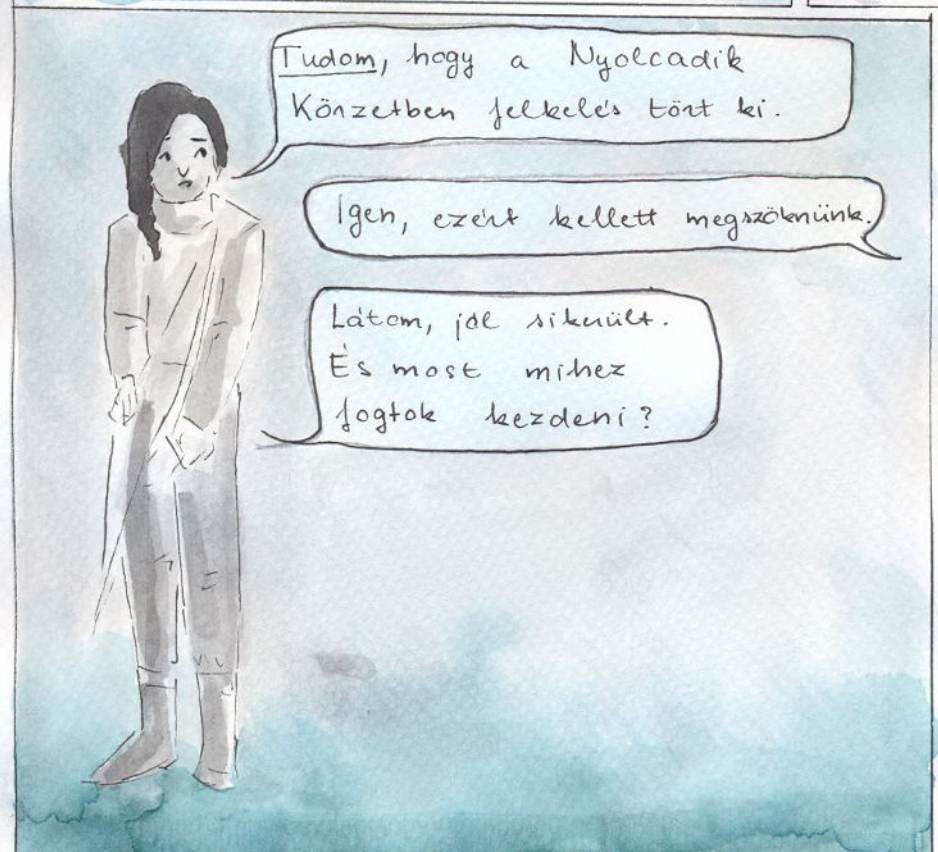 Tudom, hogy a Nyolcadik
Körzetben felkelés tört ki.
Igen, ezért kellett megszöknünk.
Látom, jól sikerült.
És most mihez
fogtok kezdeni?